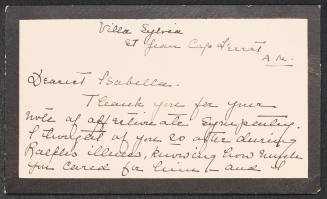 Villa Sylvia
St Jean Cap Ferrat
A.M.
Dearest Isabella.
Thank you for your
note of affectionate sympathy.
I thought of you so often during
Ralph's illness, knowing how much
you cared for him – and I